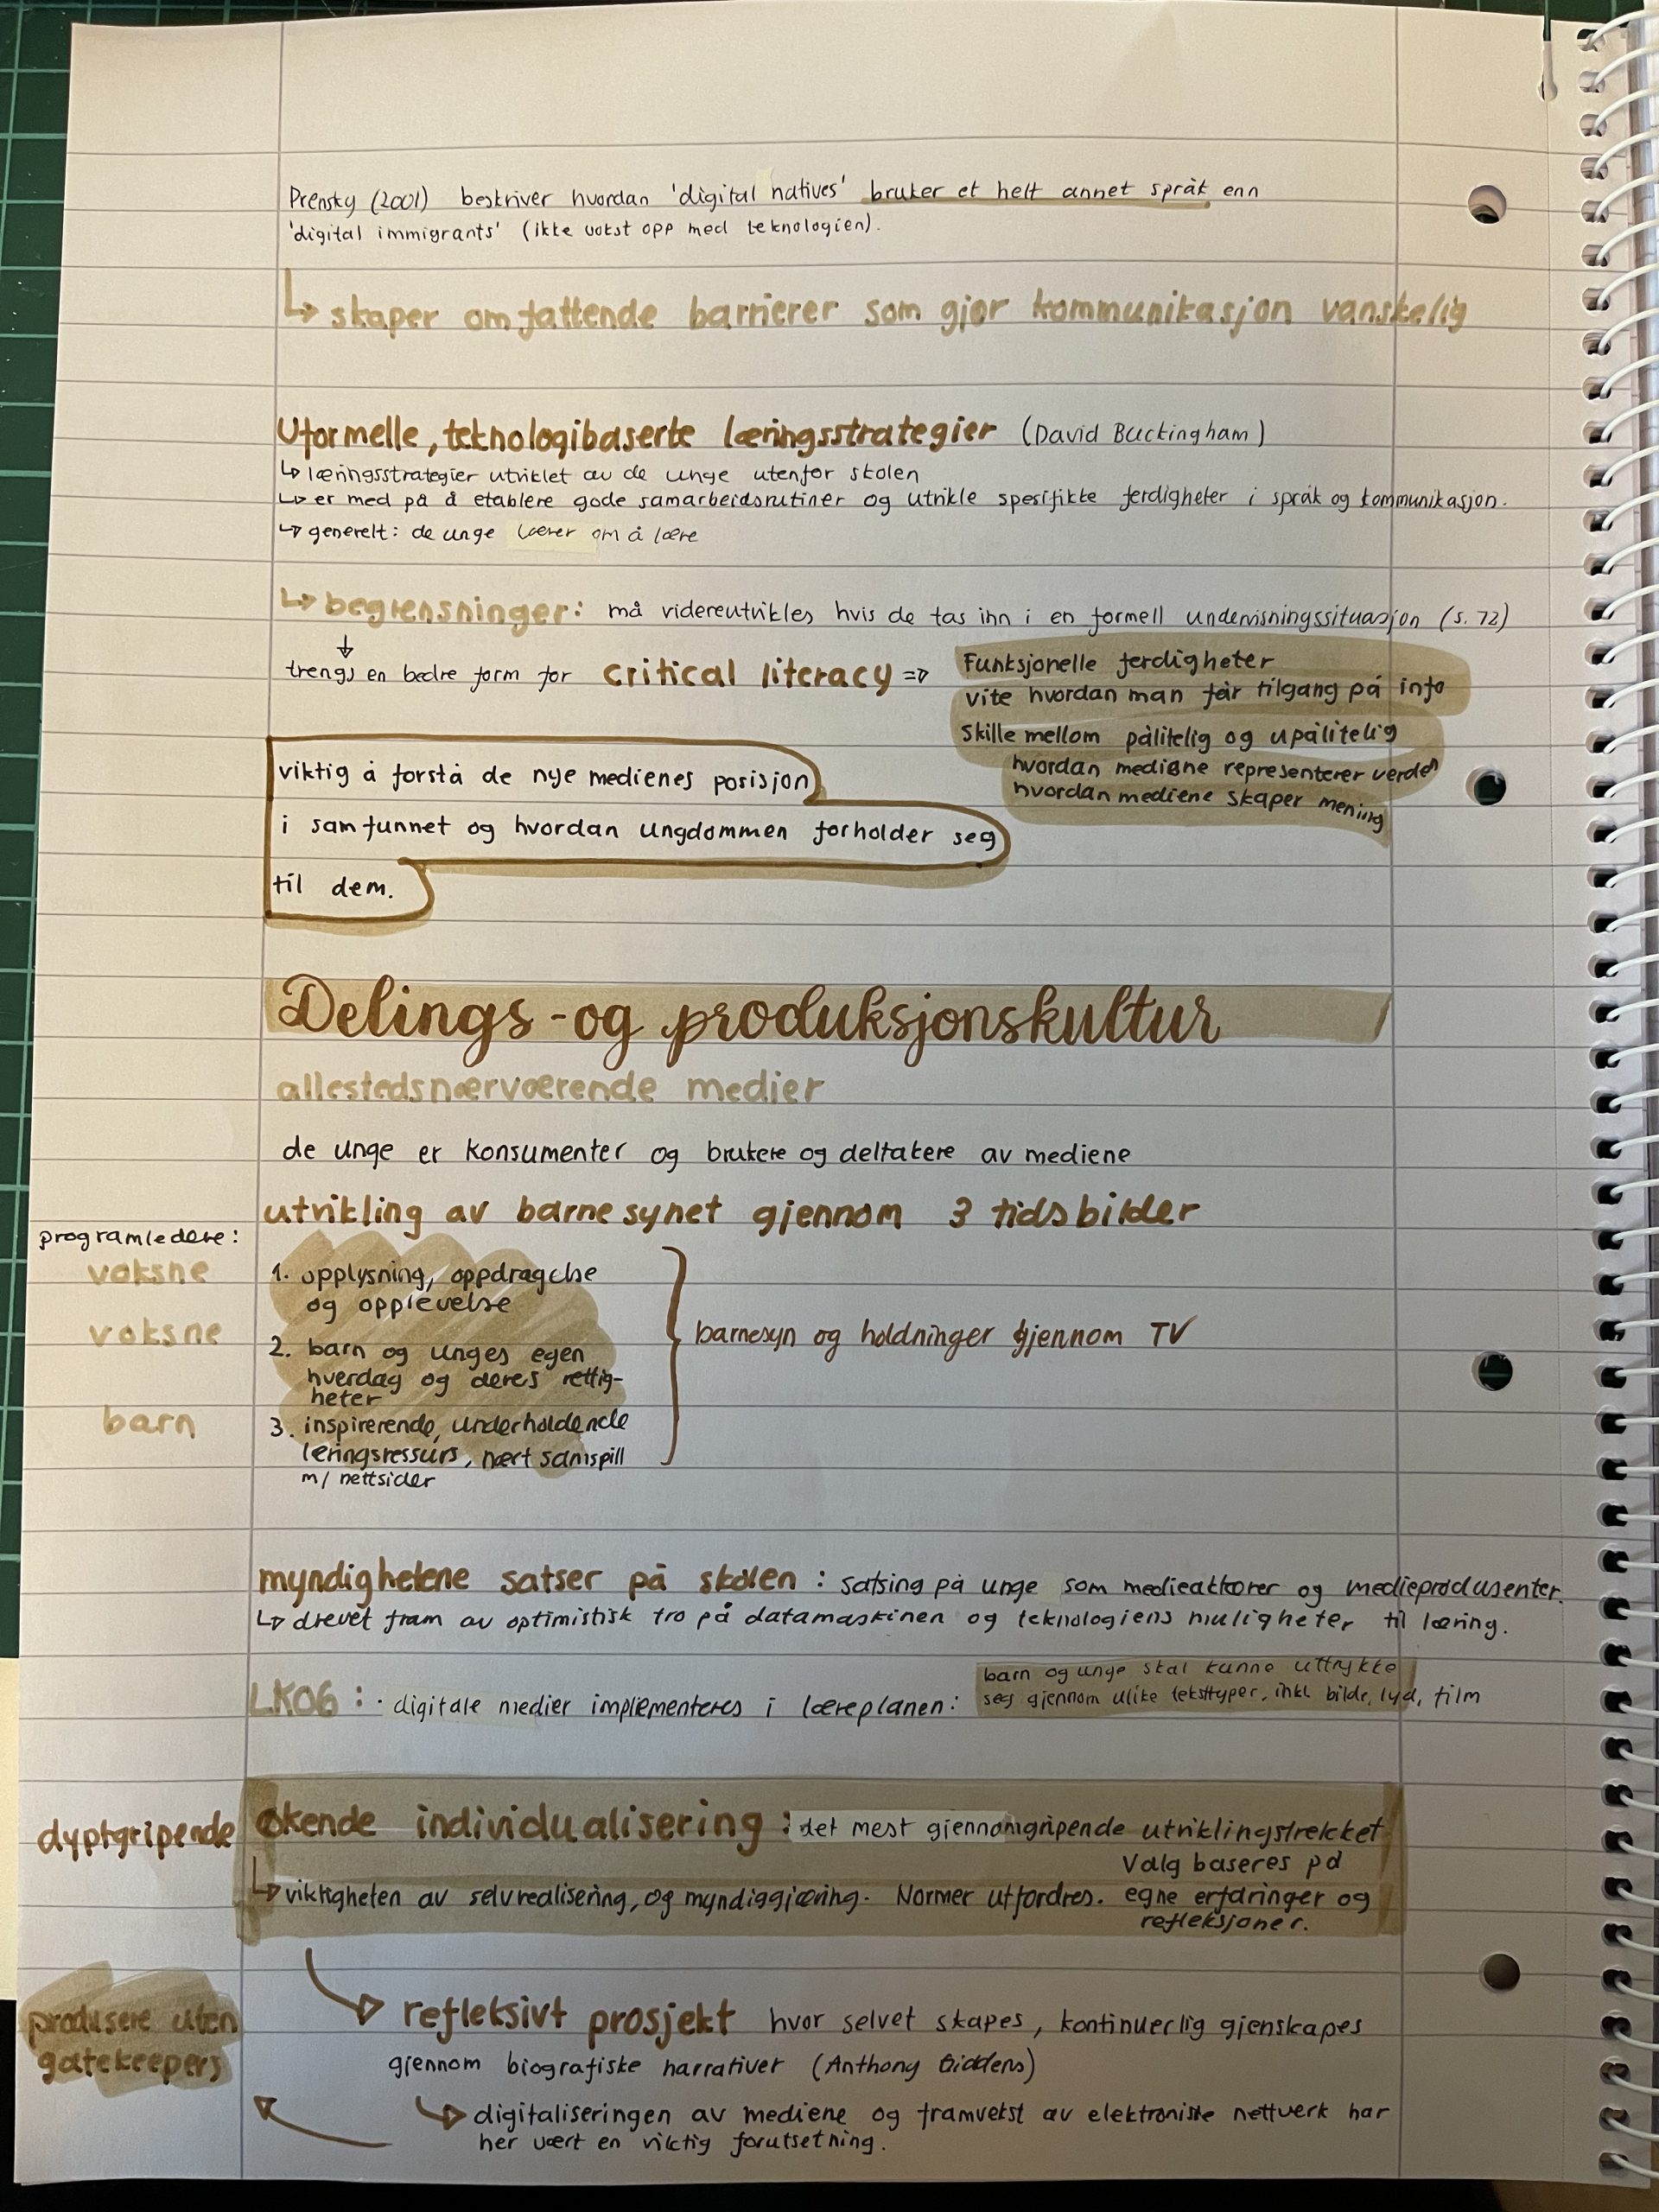 Prensky (2001) beskriver hvordan 'digital natives' bruker et helt annet språk enn
'digital immigrants' (ikke vokst opp med teknologien).
↳ skaper omfattende barrierer som gjør kommunikasjon vanskelig
Uformelle, teknologibaserte læringsstrategier (David Buckingham)
↳ læringsstrategier utviklet av de unge utenfor skolen
↳ er med på å etablere gode samarbeidsrutiner og utvikle spesifikke ferdigheter i språk og kommunikasjon.
↳ generelt: de unge lærer om å lære
↳ begrensninger: må videreutvikles hvis de tas inn i en formell undervisningssituasjon (s. 72)
↓
trengs en bedre form for critical literacy =>
Funksjonelle ferdigheter
vite hvordan man får tilgang på info
Skille mellom pålitelig og upålitelig
hvordan mediene representerer verden
hvordan mediene skaper mening
viktig å forstå de nye medienes posisjon
i samfunnet og hvordan ungdommen forholder seg
til dem.
Delings-og produksjonskultur
allestedsnærværende medier
de unge er konsumenter og brukere og deltakere av mediene
utvikling av barnesynet gjennom 3 tidsbilder
programledere:
voksne
1. opplysning, oppdragelse
og opplevelse
voksne
2. barn og unges egen
hverdag og deres rettig-
heter
barn
3. inspirerende, underholdende
læringsressurs, nært samspill
m/ nettsider
barnesyn og holdninger gjennom TV
myndighetene satser på skolen : satsing på unge som medieaktører og medieprodusenter.
↳ drevet fram av optimistisk tro på datamaskinen og teknologiens muligheter til læring.
LK06 : · digitale medier implementeres i læreplanen:
barn og unge skal kunne uttrykke
seg gjennom ulike teksttyper, inkl bilde, lyd, film
dyptgripende
økende individualisering : det mest gjennomgripende utviklingstrekket
↳ viktigheten av selvrealisering, og myndiggjøring. Normer utfordres.
Valg baseres på
egne erfaringer og
refleksjoner.
→ refleksivt prosjekt hvor selvet skapes, kontinuerlig gjenskapes
gjennom biografiske narrativer (Anthony Giddens)
↳ digitaliseringen av mediene og framvekst av elektroniske nettverk har
her vært en viktig forutsetning.
produsere uten
gatekeepers